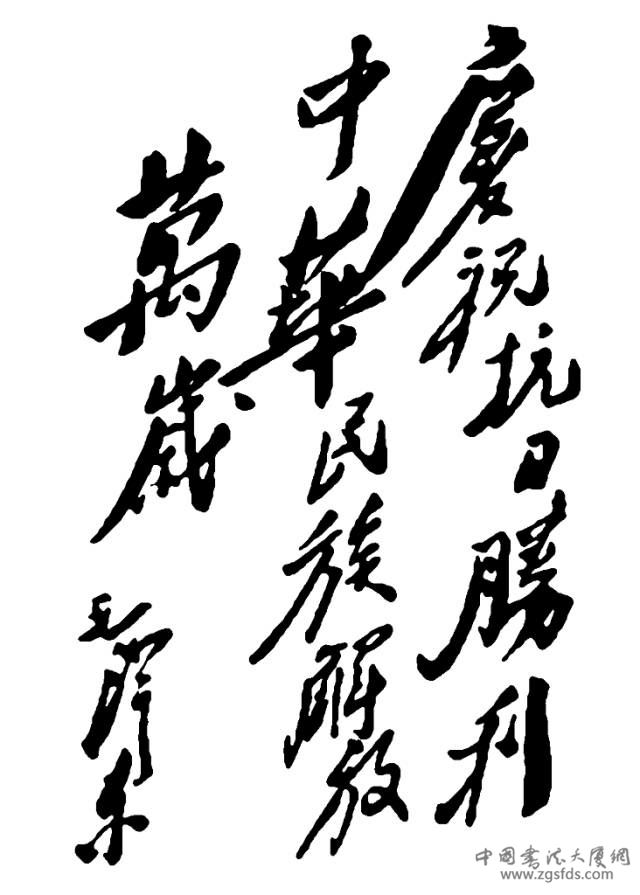 慶祝抗日勝利
中華民族解放
萬歲
毛澤东
中國書法大厦網
www.zgsfds.com